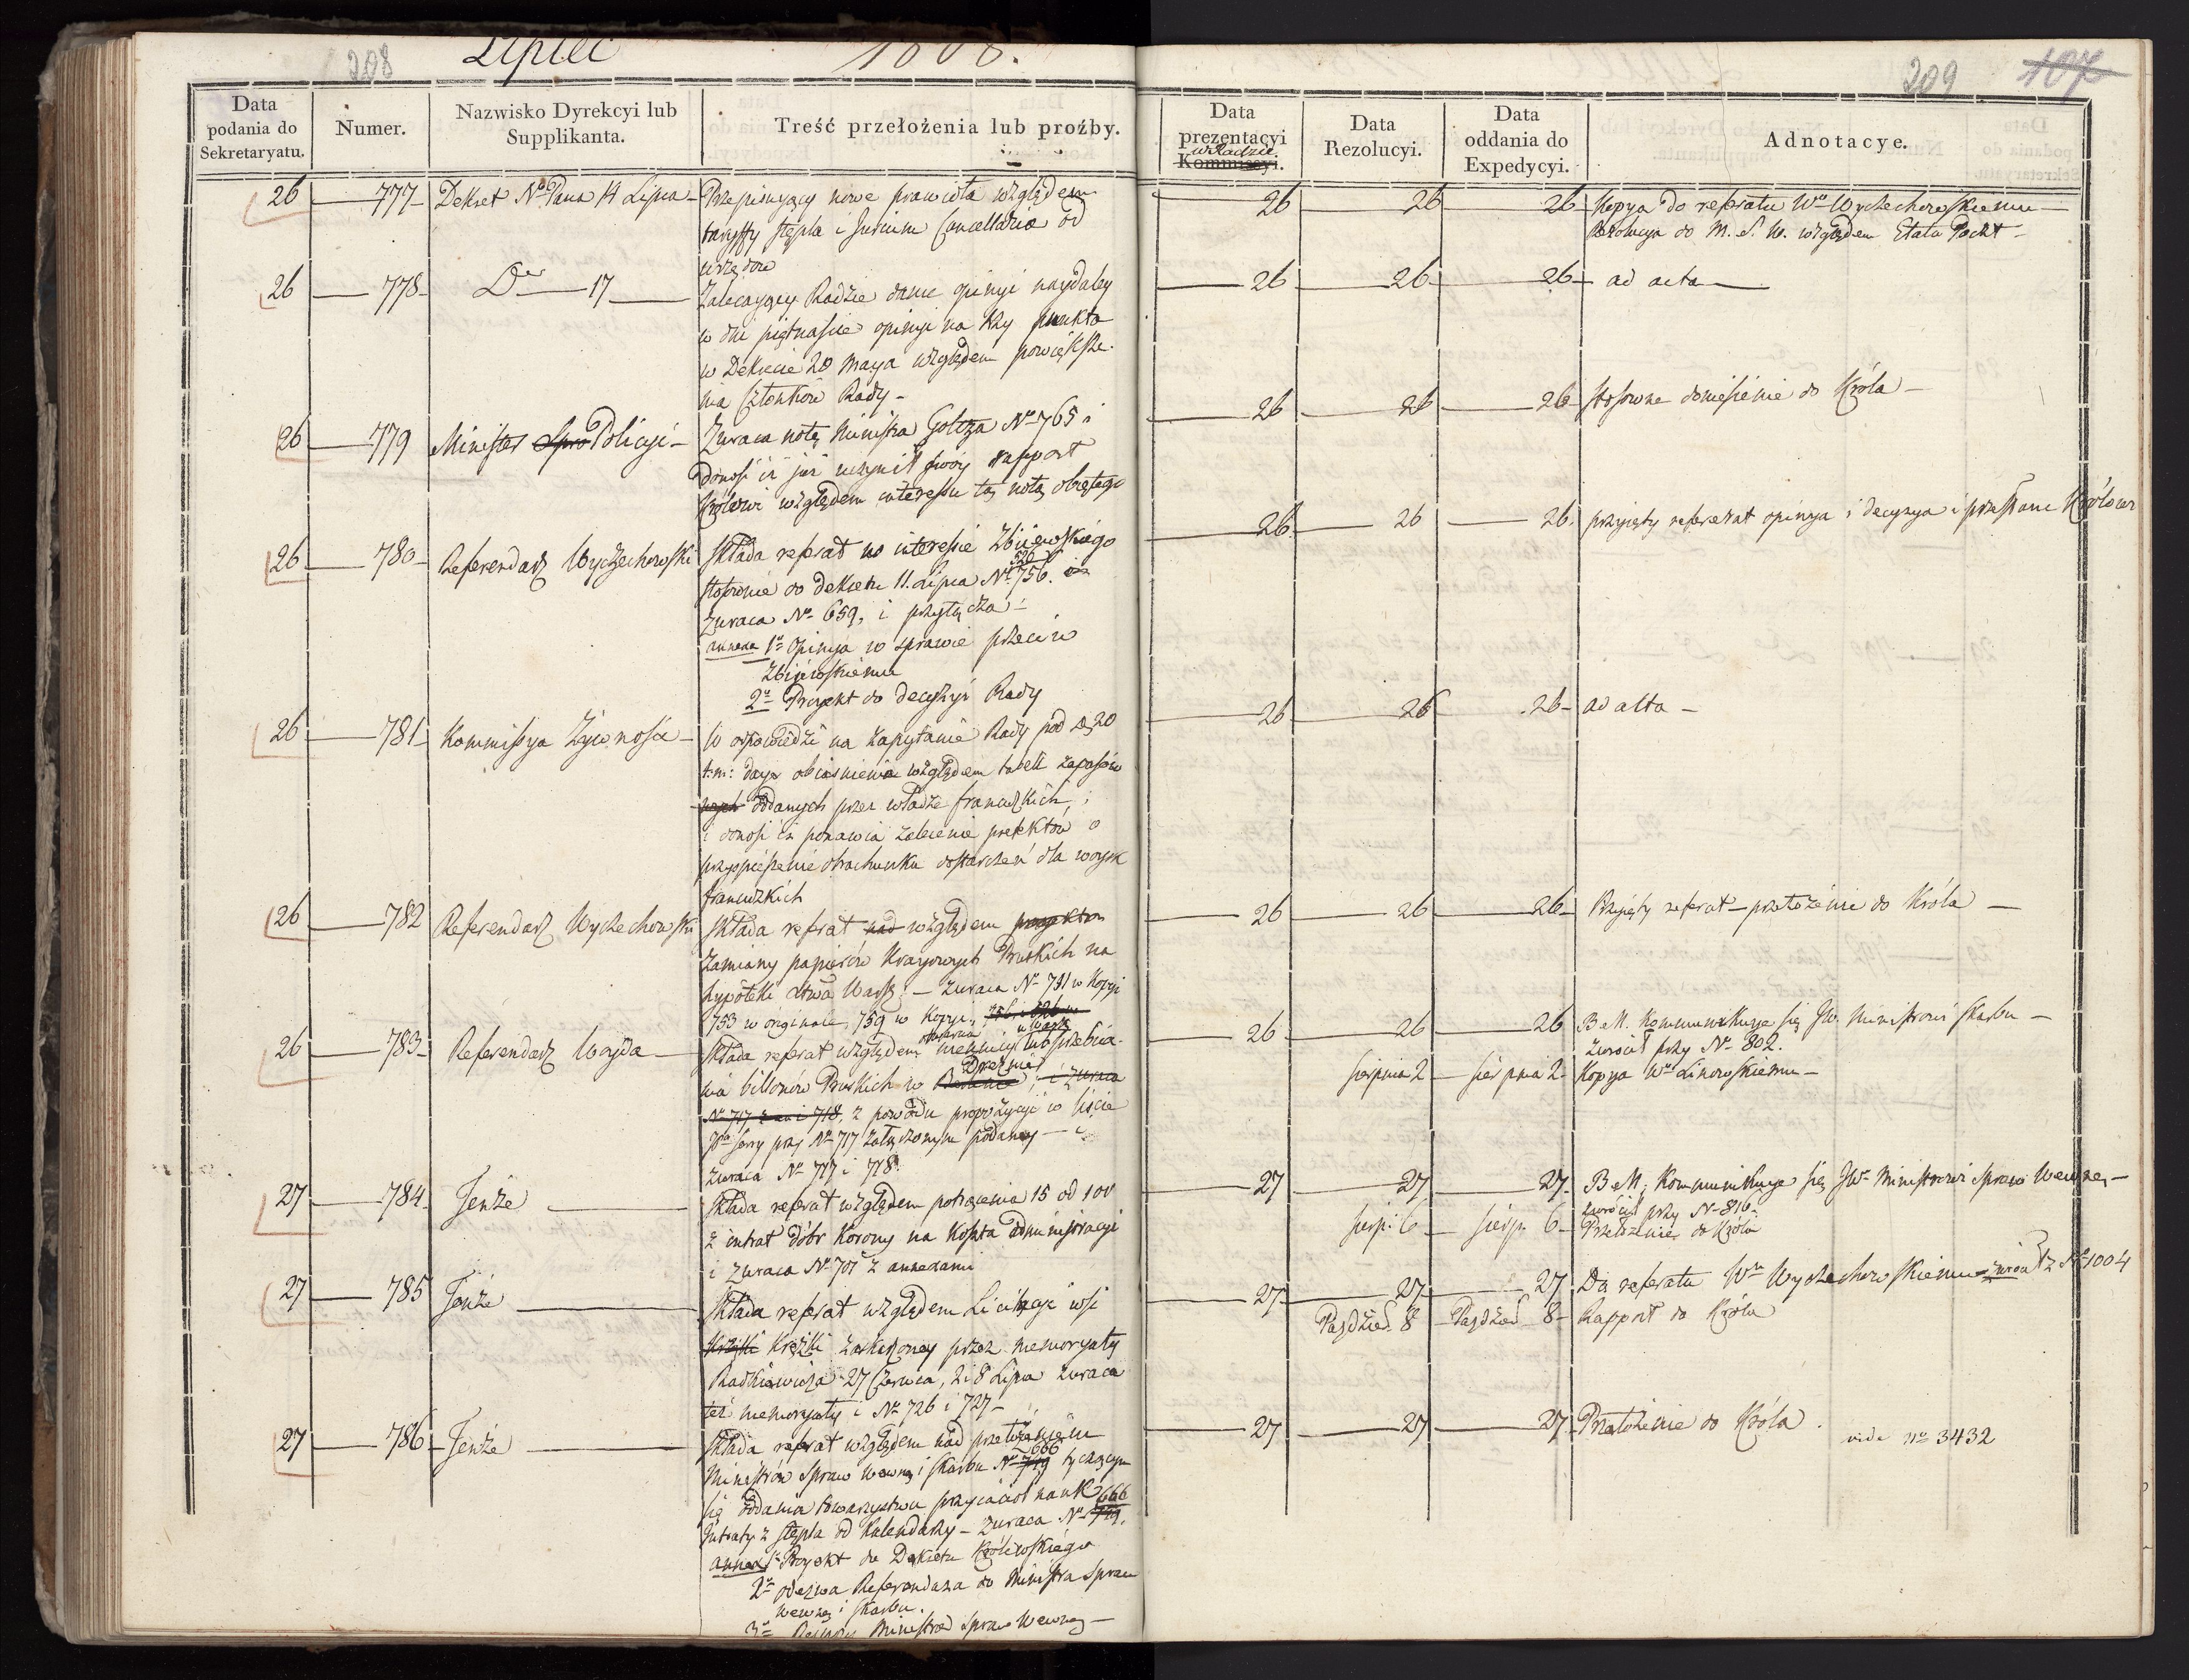 208 Lipiec 1808.
Data podania do Sekretaryatu.
Numer.
Nazwisko Dyrekcyi lub Supplikanta.
Treść przełożenia lub proźby.
26 777 Dekret No Pana 14 Lipca
Przepisujący nowe prawidła względem
taryffy stępla i Jurium Cancellariae od
urzędów
26 778 Do 17
Zalecający Radzie danie opinyi naydaley
w dni piętnaście opinyi na trzy punkta
w Dekrecie 20 Maya względem powiększe-
nia Członków Rady -
26 779 Minister Spra Policyi
Zwraca notę Ministra Goltza No 765 i
donosi iż już uczynił swóy rapport
Królowi względem interessu tą notą objętego
26 780 Referendarz Wyczechowski
Składa referat w interessie Zbijewskiego
526
stosownie do dekretu 11. Lipca No 756.
Zwraca No 659, i przyłącza
annexa 1o Opinya w sprawie przeciw
Zbijewskiemu
2o Proiekt do decyzyi Rady
26 781 Kommissya Żywności
W odpowiedzi na zapytanie Rady pod d. 20
t.m: daje obiaśnienia względem tabelli zapasów
oddanych przez władze francuzkich, i
i donosi iż ponawia zalecenie prefektów o
przyspieszenie obrachunku dostarczeń dla woysk
francuzkich
26 782 Referendarz Wyczechowski
Składa referat nad względem projektu
zamiany papierów Krajowych Pruskich na
hypoteki Xtwa Warsz: - Zwraca No 741 w Kopji
753 w originale, 759 w Kopji,
26 783 Referendarz Woyda
Składa referat względem mennicy lub przebija-
Dreznie
nia billonów Pruskich w Berlinie, i zwraca
No 717, i 718, z powodu propozycyi w liście
Serry przy No 717 załączonym podaney - i
zwraca No 717 i 718.
27 784 Tenże
Składa referat względem potrącenia 15 od 100
z intrat dóbr Korony na Koszta administracyi
i zwraca No 701 z annexami
27 785 Tenże
Składa referat względem Licitacyi wsi
Krężki zaskarżoney przez memoryały
Radkiewicza 27 Czerwca, 2 i 8 Lipca zwraca
też memoryały i No 726 i 727 -
27 786 Tenże
Składa referat względem nad przełożeniem
666
Ministrów Spraw Wewnę i Skarbu No 719 tyczącym
się oddania towarzystwu przyjaciół nauk 666
Intraty z stępla od Kalendarzy - Zwraca No 719.
annexa 1o Proyekt do Dekretu Królewskiego
2o odezwa Referendarza do Ministra Spraw
Wewnę i Skarbu.
3o Ministra Spraw Wewnę -
209 107
Data prezentacyi w Radzie Kommissyi.
Data Rezolucyi.
Data oddania do Expedycyi.
Adnotacye.
26 26 26 Kopya do referatu Wu Wyczechowskiemu
Rezolucya do M. S. W. względem Etatu Poczt
26 26 26 ad acta
26 26 26 Stosowne doniesienie do Króla
26 26 26 przyięty referat opinya i decyzya i przesłane Królowi
26 26 26 ad acta
26 26 26 Przyięty referat - przełożenie do Króla
26 26 26 B.M. Kommunikuje się JW. Ministrowi Skarbu
zwrócił przy No 802.
Sierpnia 2 Sierpnia 2 Kopya Wu Linowskiemu
27 27 27 B.M. Kommunikuje się JW. Ministrowi Spraw Wewnę
zwrócił przy No 816
sierp: 6 sierp. 6 Przełożenie do Króla
27 27 27 Do referatu Wu Wyczechowskiemu zwrócił z No 1004
Paździer. 8 Paździer 8 Rapport do Króla
27 27 27 Przełożenie do Króla. vide No 3432